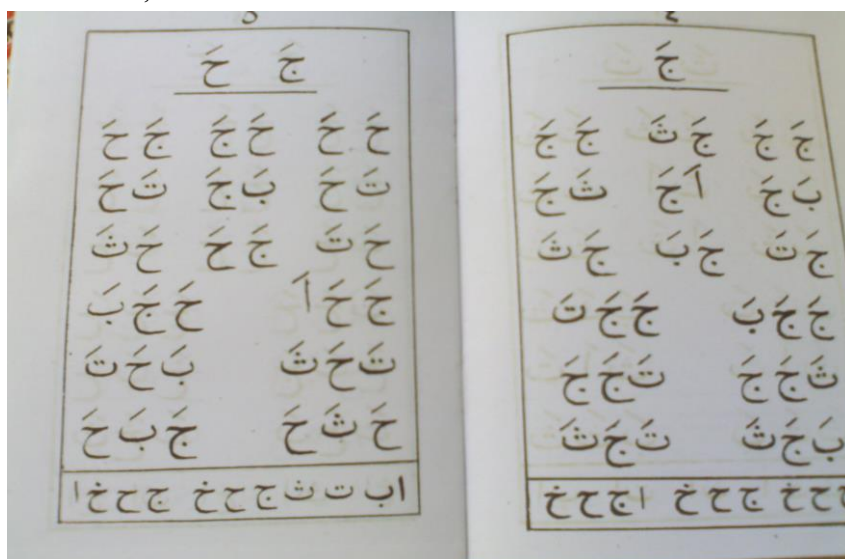 ٤
جَ
جَ جَ جَ ثَ جَ جَ
بَ جَ اَ جَ ثَ جَ
جَ تَ جَ بَ جَ ثَ
جَ جَ بَ جَ جَ تَ
ثَ جَ جَ تَ جَ جَ
بَ جَ ثَ تَ جَ ثَ
ح خ ج ح خ ا ج ح خ
٥
جَ حَ
حَ حَ حَ جَ جَ حَ
تَ حَ بَ جَ تَ حَ
حَ تَ جَ حَ حَ ثَ
جَ حَ اَ حَ جَ بَ
تَ حَ ثَ بَ حَ تَ
حَ ثَ حَ جَ بَ حَ
ا ب ت ث ج ح خ ج ح خ ا